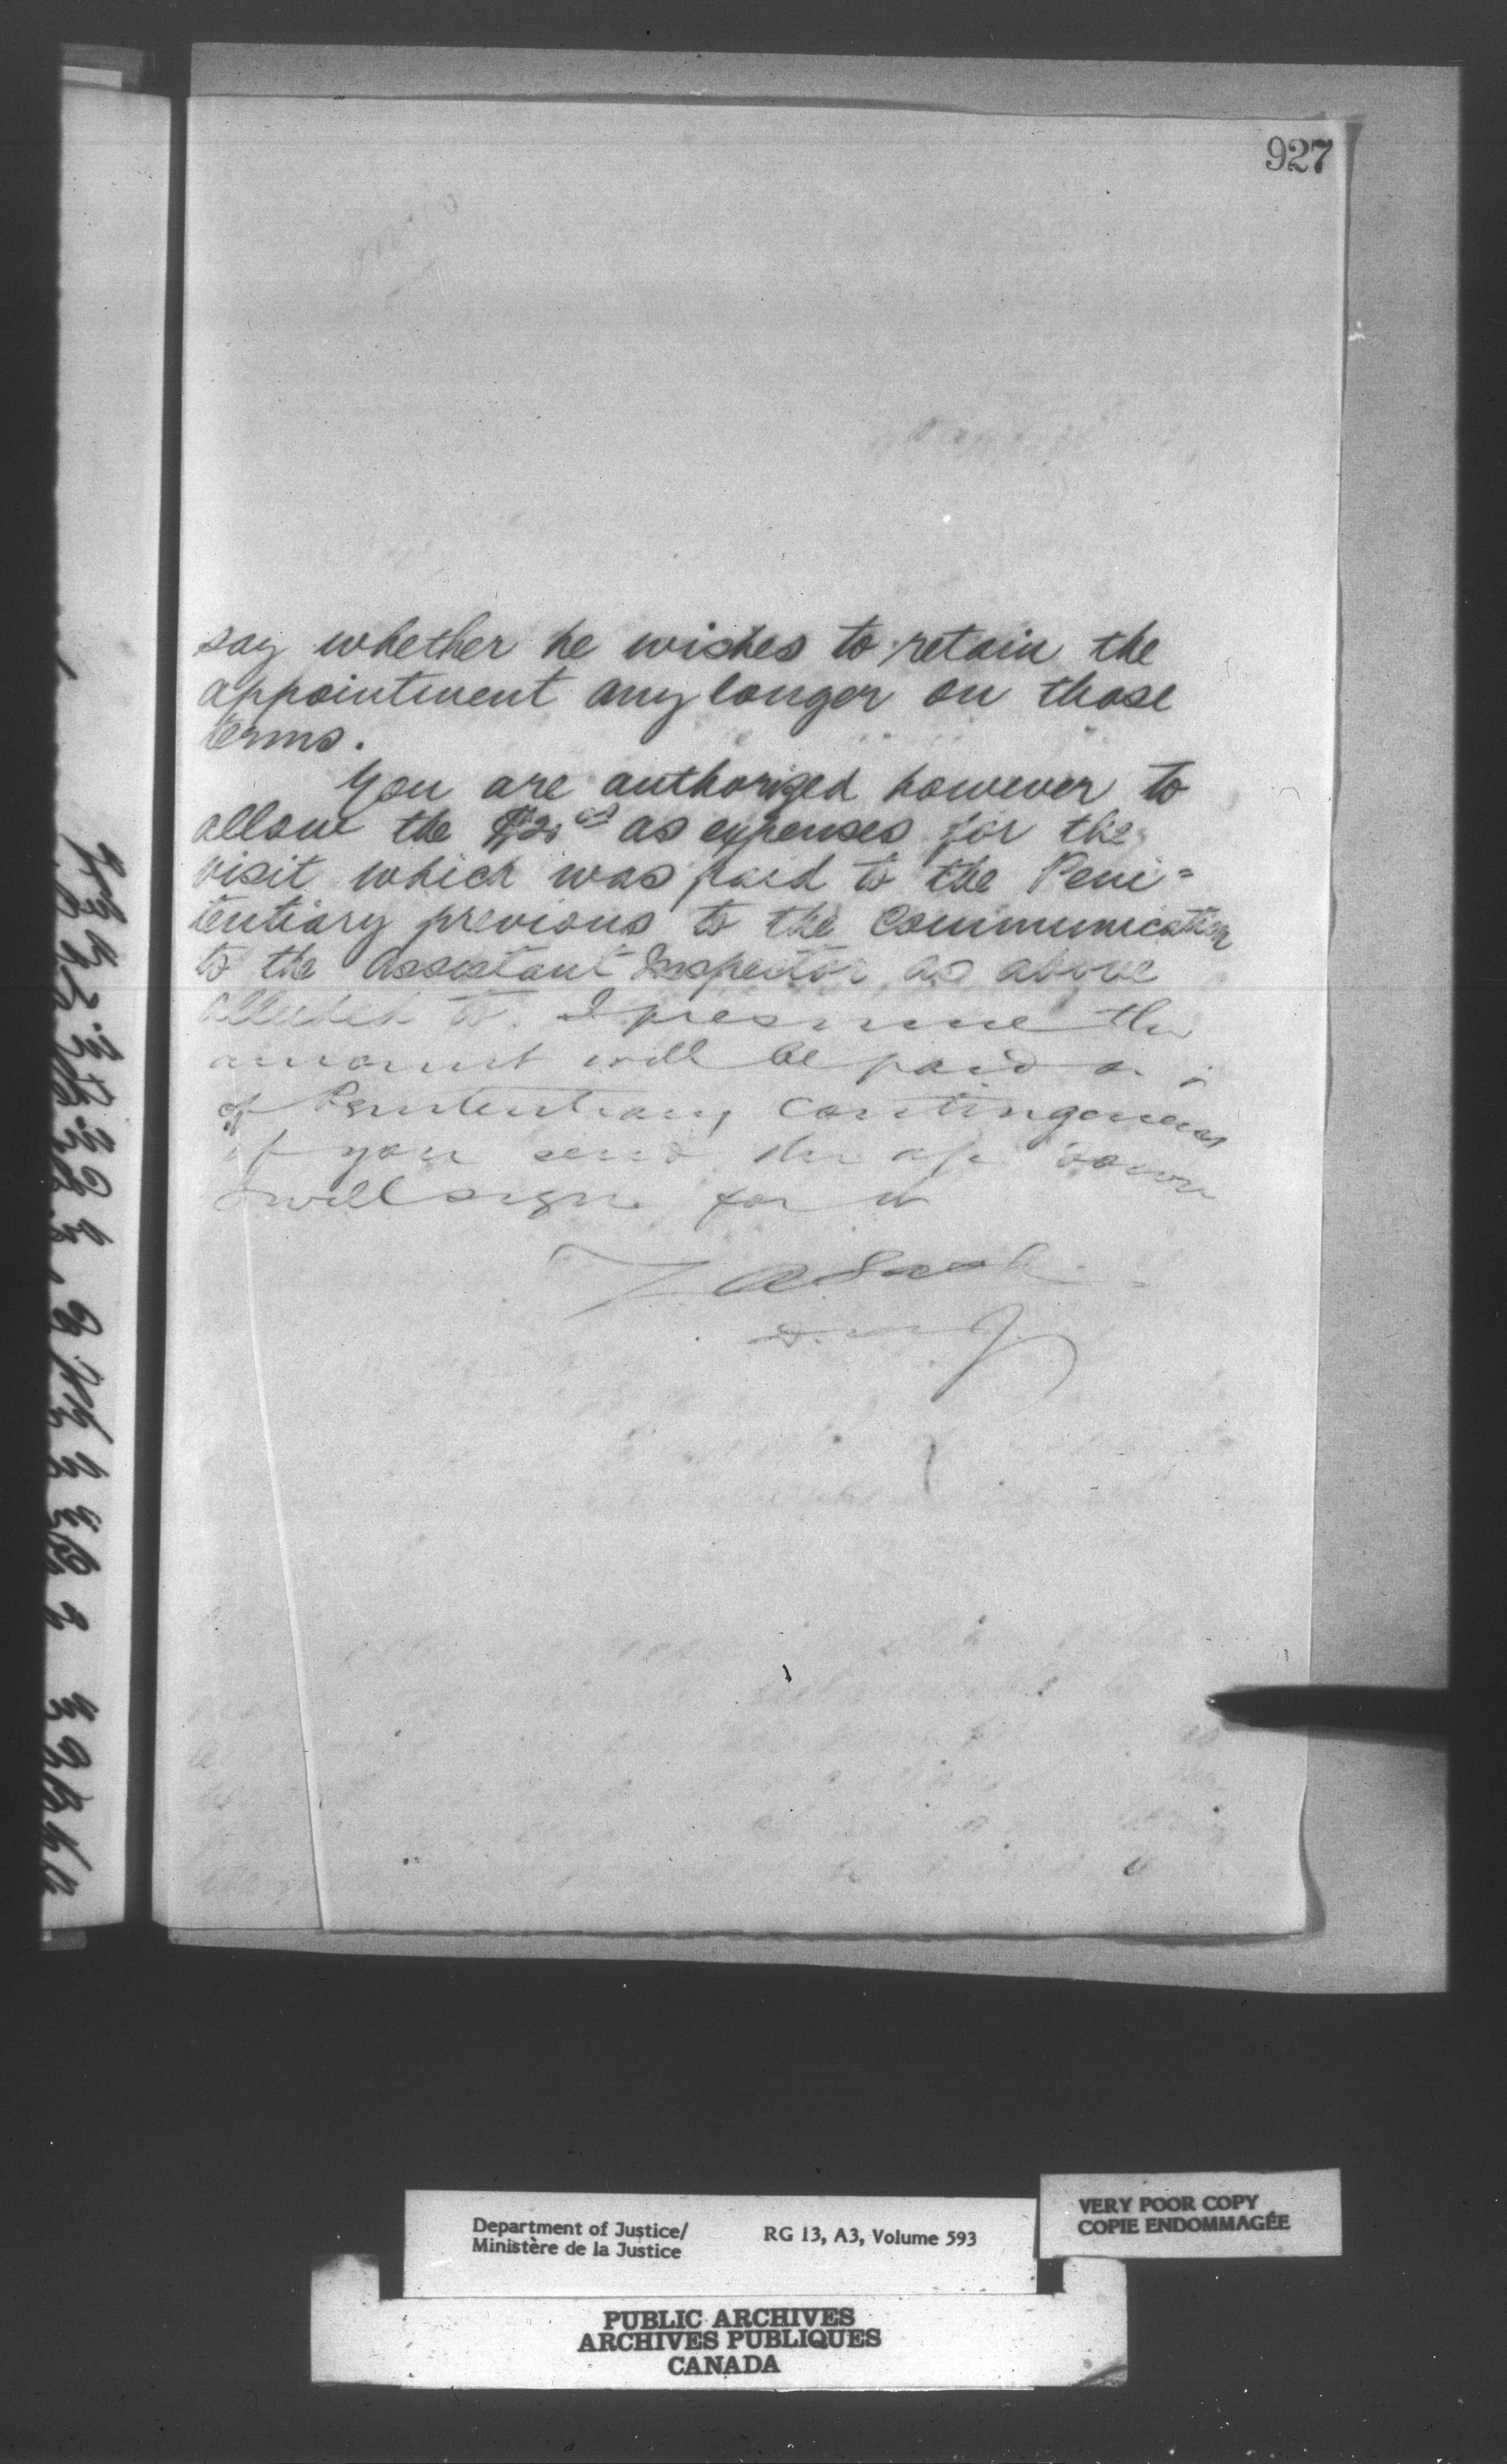 927
say whether he wishes to retain the
appointment any longer on those
terms.
You are authorized however to
allow the $20 as expenses for the
visit which was paid to the Peni=
tentiary previous to the Communication
to the Assistant Inspector as above
alluded to. I presume the
amount will be paid
of Penitentiary Contingencies
if you send the down
I will sign for it
Z A Lash
D.M.J.
Department of Justice/
Ministère de la Justice
RG 13, A3, Volume 593
VERY POOR COPY
COPIE ENDOMMAGÉE
PUBLIC ARCHIVES
ARCHIVES PUBLIQUES
CANADA